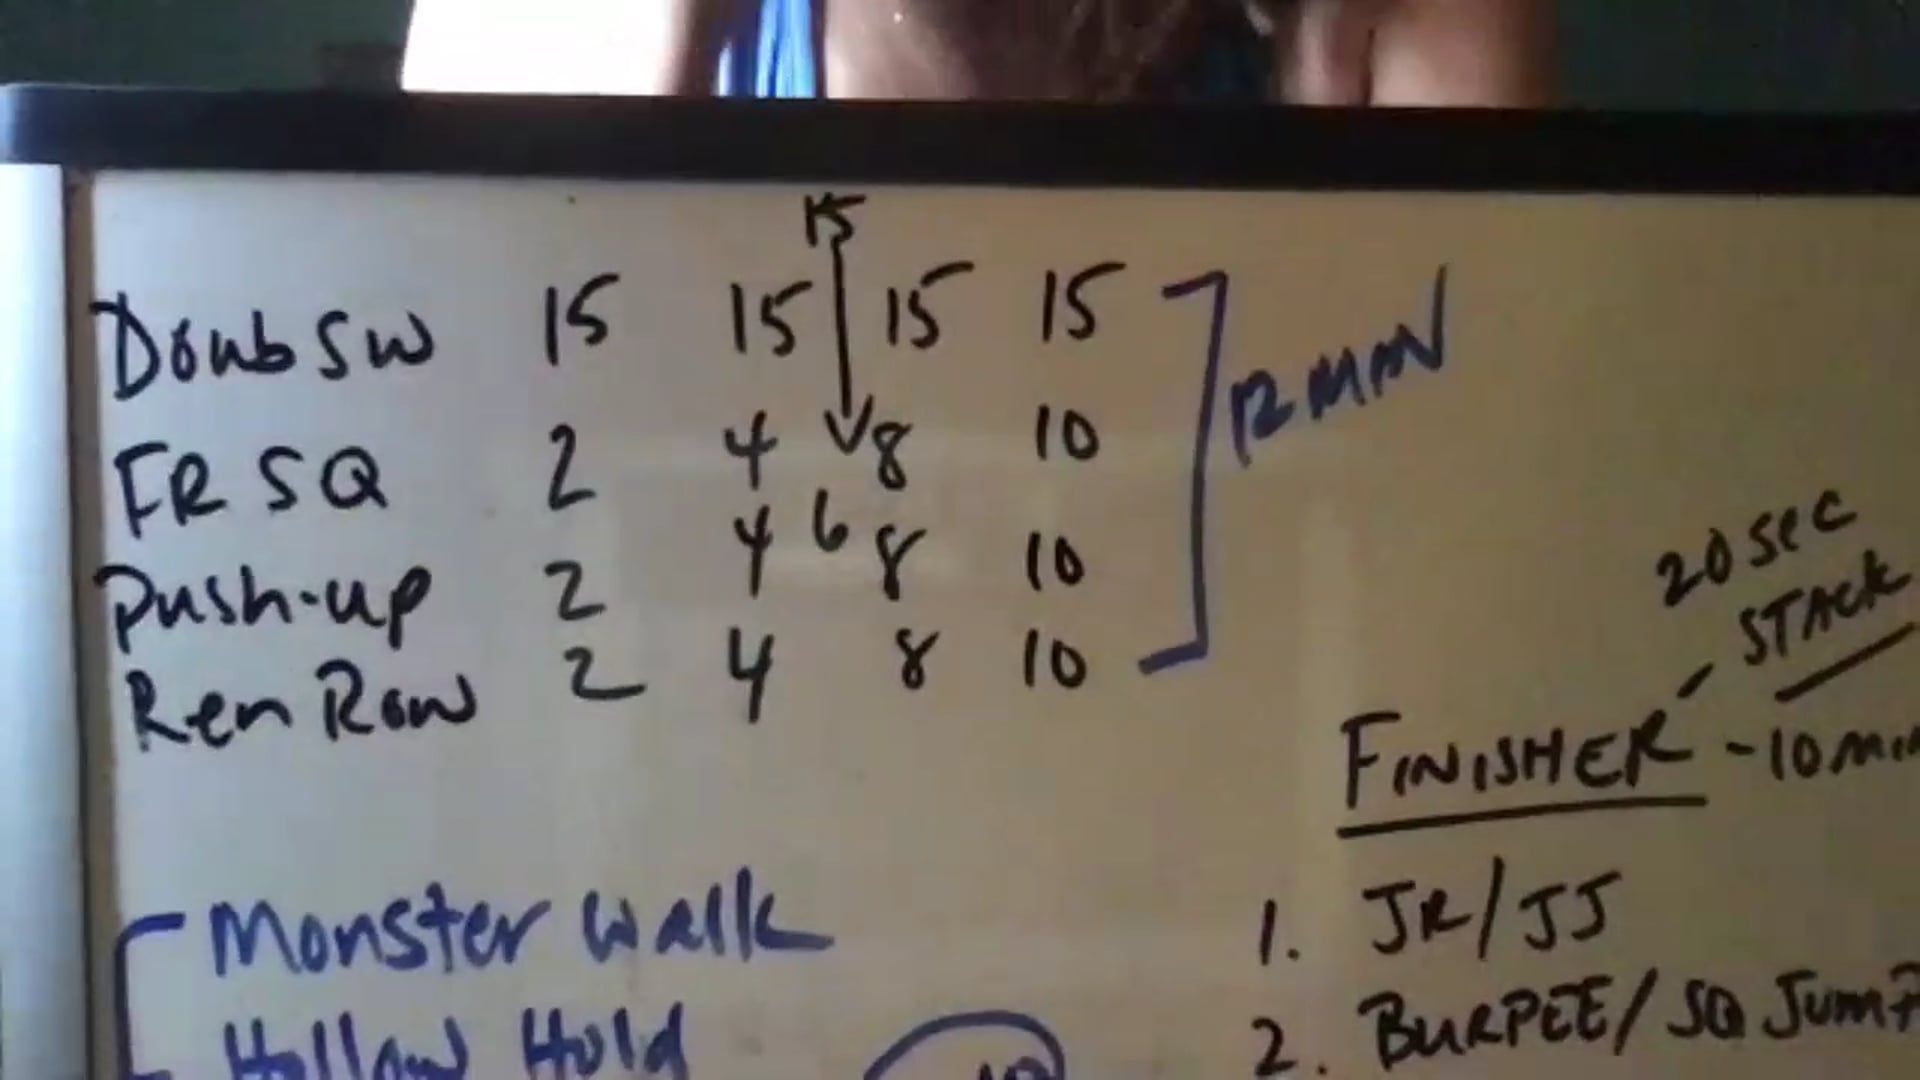 15
Doub SW 15 15 15 15
FR SQ 2 4 8 10
Push-up 2 4 6 8 10
Ren Row 2 4 8 10
12 MIN
20 sec
STACK
FINISHER - 10 min
1. JR/JJ
2. BURPEE/SQ JUMP
Monster Walk
Hollow Hold